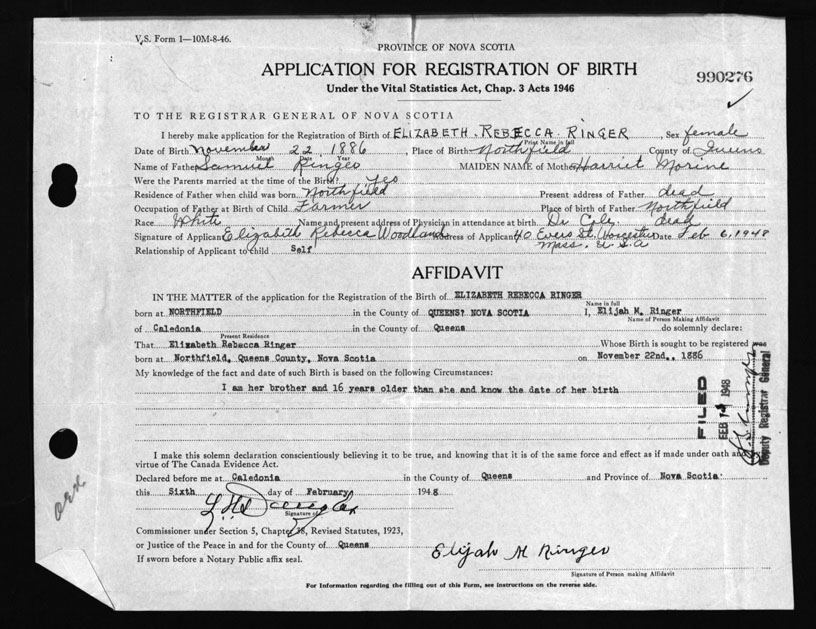 V.S. Form 1—10M-8-46.
PROVINCE OF NOVA SCOTIA
APPLICATION FOR REGISTRATION OF BIRTH
990276
Under the Vital Statistics Act, Chap. 3 Acts 1946
TO THE REGISTRAR GENERAL OF NOVA SCOTIA
I hereby make application for the Registration of Birth of ELIZABETH REBECCA RINGER, Sex female
Print Name in full
Date of Birth November 22, 1886, Place of Birth Northfield County of Queens
Month Date Year
Name of Father Samuel Ringer MAIDEN NAME of Mother Harriet Morine
Were the Parents married at the time of the Birth? Yes
Residence of Father when child was born Northfield Present address of Father dead
Occupation of Father at Birth of Child Farmer Place of birth of Father Northfield
Race White Name and present address of Physician in attendance at birth Dr Cole dead
Signature of Applicant Elizabeth Rebecca Woodland Address of Applicant 40 Evers St. Worcester Date Feb 6, 1948
Mass. U.S.A
Relationship of Applicant to child Self
AFFIDAVIT
IN THE MATTER of the application for the Registration of the Birth of ELIZABETH REBECCA RINGER
Name in full
born at NORTHFIELD in the County of QUEENS? NOVA SCOTIA I, Elijah M. Ringer
Name of Person Making Affidavit
of Caledonia in the County of Queens do solemnly declare:
Present Residence
That Elizabeth Rebecca Ringer Whose Birth is sought to be registered was
born at Northfield, Queens County, Nova Scotia on November 22nd., 1886
My knowledge of the fact and date of such Birth is based on the following Circumstances:
I am her brother and 16 years older than she and know the date of her birth
FILED
FEB 1948
Deputy Registrar General
I make this solemn declaration conscientiously believing it to be true, and knowing that it is of the same force and effect as if made under oath and
virtue of The Canada Evidence Act.
Declared before me at Caledonia in the County of Queens and Province of Nova Scotia
this Sixth day of February 1948
Signature of
Commissioner under Section 5, Chapter 38, Revised Statutes, 1923,
or Justice of the Peace in and for the County of Queens
Elijah M Ringer
If sworn before a Notary Public affix seal.
Signature of Person making Affidavit
For Information regarding the filling out of this Form, see instructions on the reverse side.